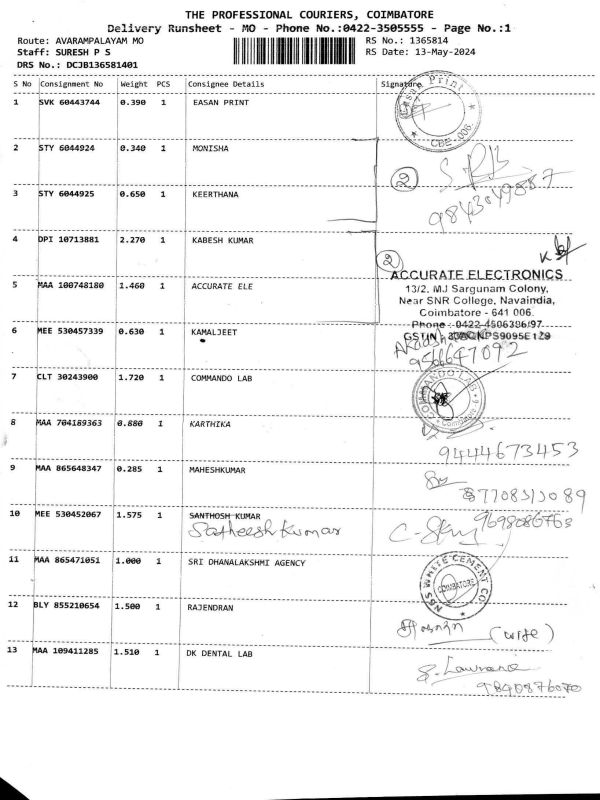 THE PROFESSIONAL COURIERS, COIMBATORE
Delivery Runsheet - MO - Phone No.:0422-3505555 - Page No.:1
Route: AVARAMPALAYAM MO RS No.: 1365814
Staff: SURESH P S RS Date: 13-May-2024
DRS No.: DCJB136581401
S No Consignment No Weight PCS Consignee Details Signature
1 SVK 60443744 0.390 1 EASAN PRINT
Easan Print
CBE-006.
2 STY 6044924 0.340 1 MONISHA
2
3 STY 6044925 0.650 1 KEERTHANA
9843049887
4 DPI 10713881 2.270 1 KABESH KUMAR
2
ACCURATE ELECTRONICS
5 MAA 100748180 1.460 1 ACCURATE ELE
13/2, MJ Sargunam Colony,
Near SNR College, Navaindia,
Coimbatore - 641 006.
Phone : 0422-4506396/97
6 MEE 530457339 0.630 1 KAMALJEET
GSTIN
7 CLT 30243900 1.720 1 COMMANDO LAB
COMMANDO LAB
8 MAA 704189363 0.880 1 KARTHIKA
9444673453
9 MAA 865648347 0.285 1 MAHESHKUMAR
10 MEE 530452067 1.575 1 SANTHOSH KUMAR
Satheesh Kumar
9698086763
11 MAA 865471051 1.000 1 SRI DHANALAKSHMI AGENCY
NGS WHITE CEMENT CO.
COIMBATORE
12 BLY 855210654 1.500 1 RAJENDRAN
(wife)
13 MAA 109411285 1.510 1 DK DENTAL LAB
9840876070